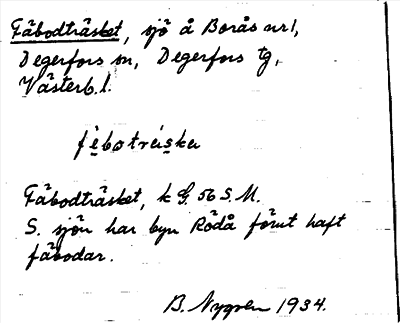 Fäbodträsket, sjö å Borås nr 1,
Degerfors sn, Degerfors tg,
Västerb. l.
fèbotrás̱ka
Fäbodträsket, k G. 56 S. M.
S. sjön har byn Rödå förut haft
fäbodar.
B. Nygren 1934.